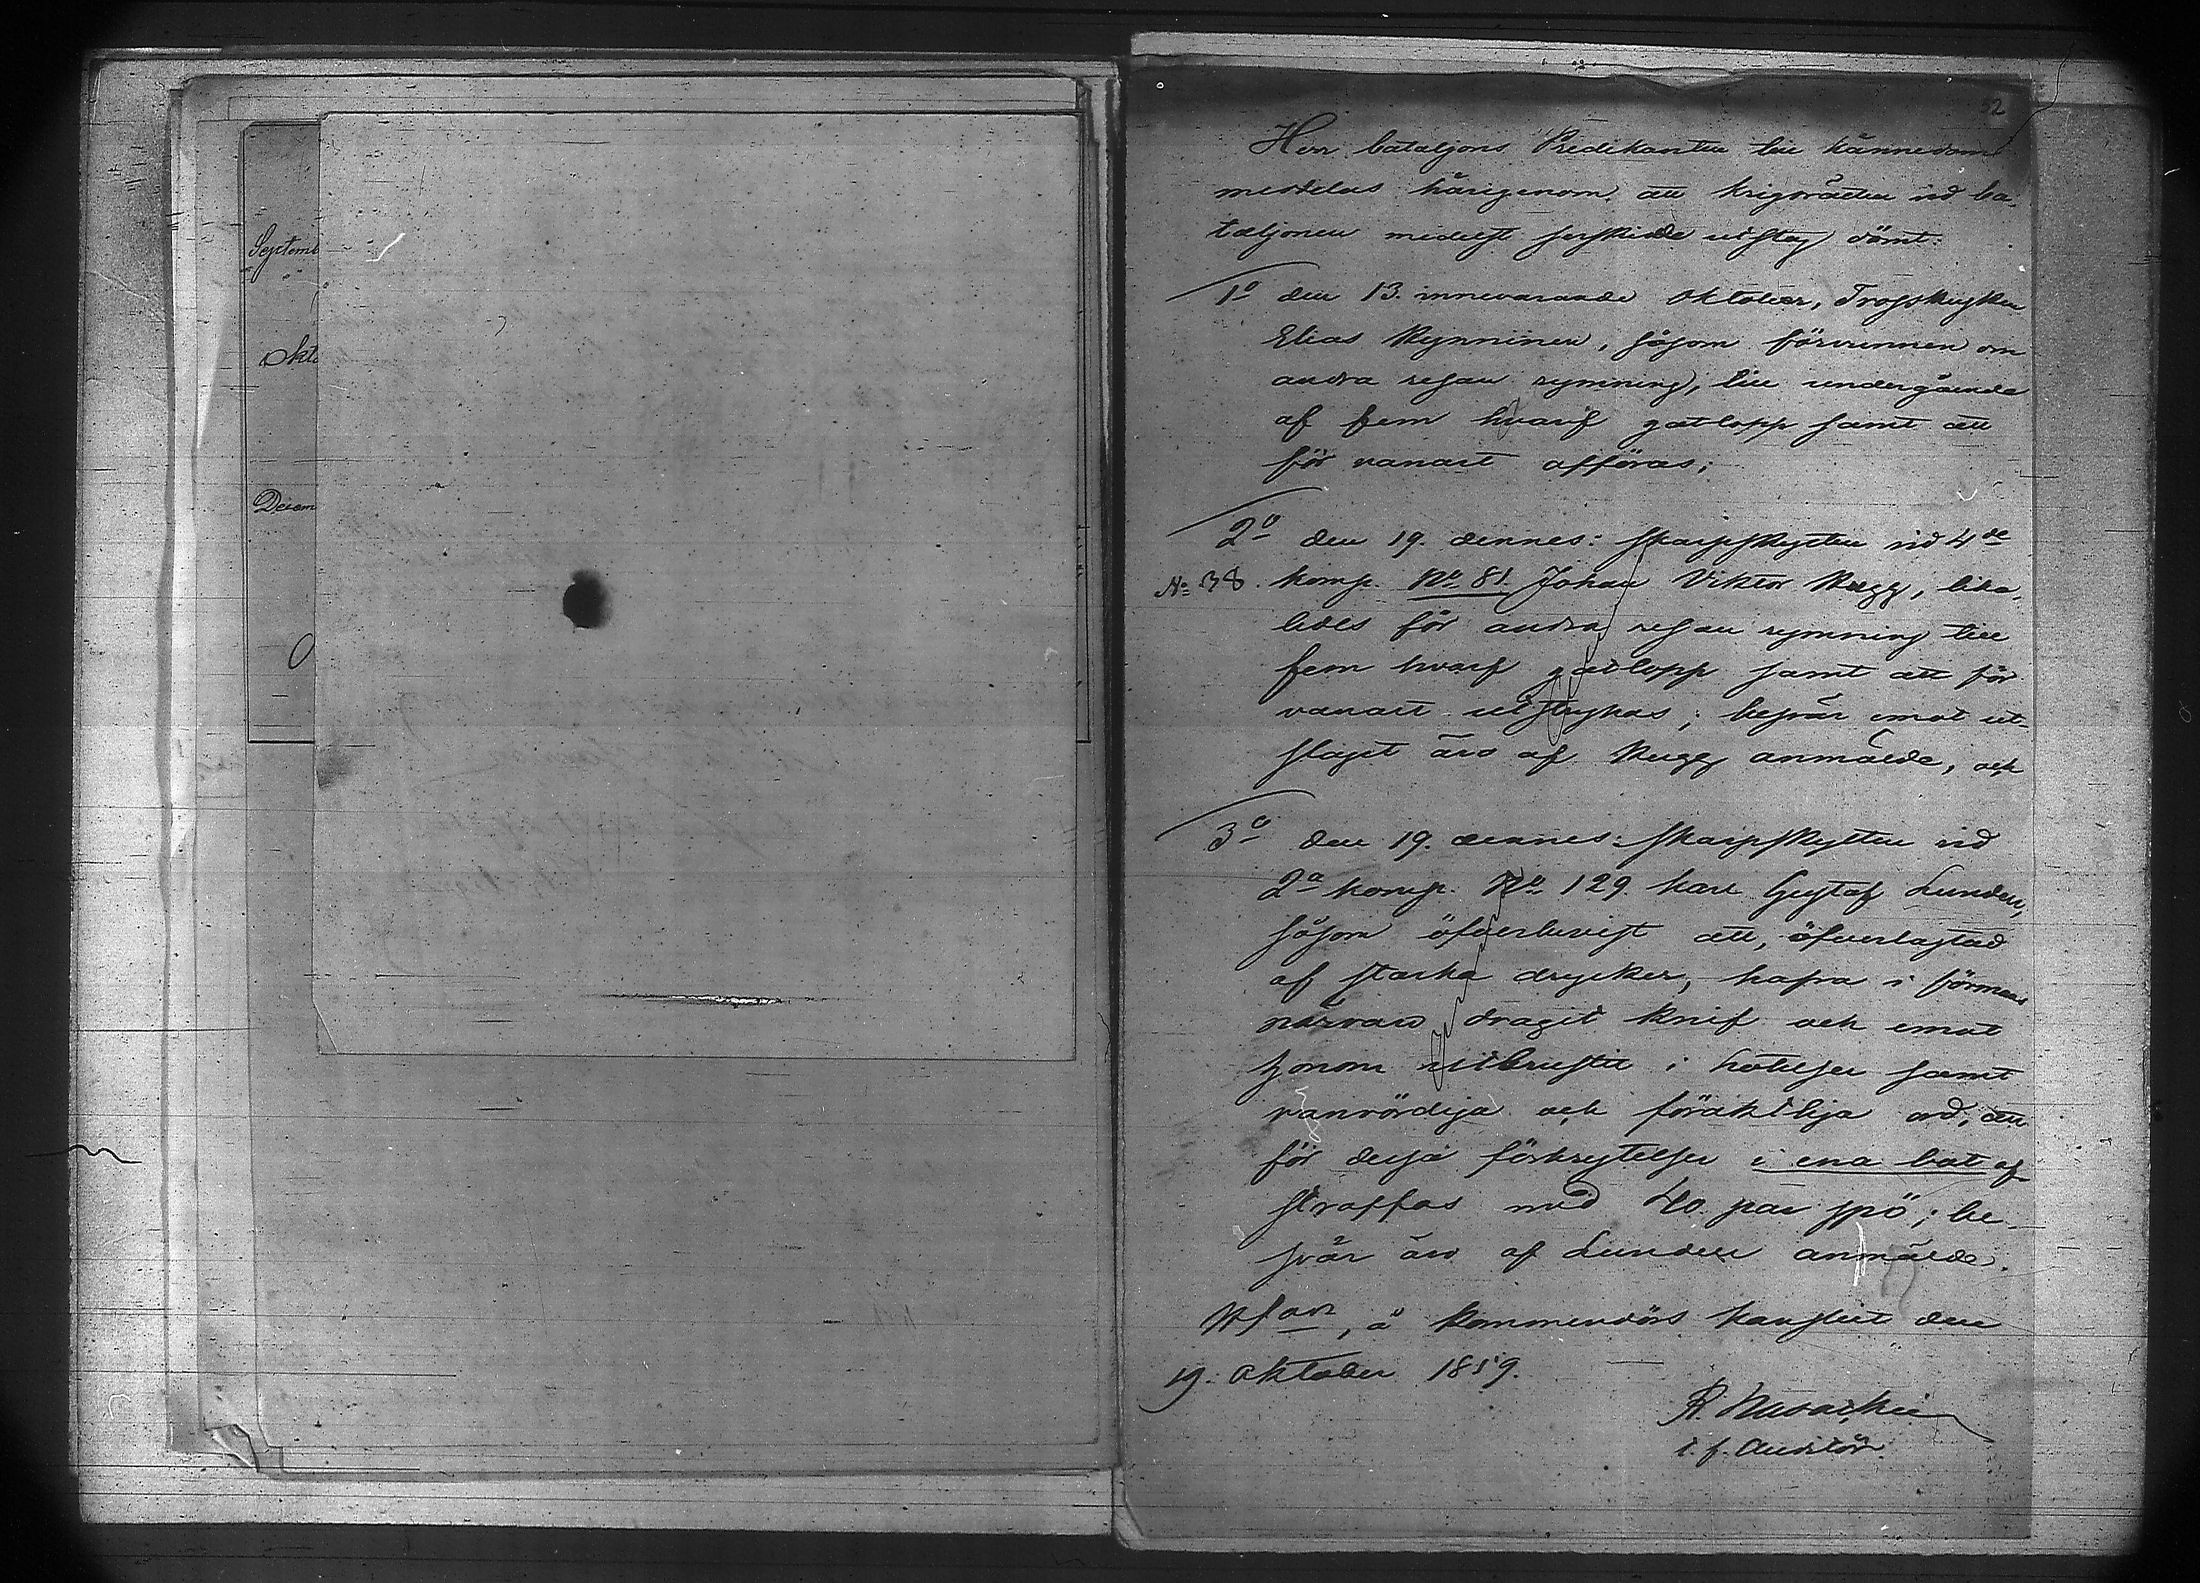 Septemb
"
Okto
Decem
52
Herr bataljons Predikanten till kännedom
meddelas härigenom, att krigsrätten vid ba-
taljonen medelst serskilde utslag dömt:
1o den 13. innevarande Oktober, Trosskusken
Elias Rynninen, såsom förvunnen om
andra resan rymning, till undergående
af fem hvarf gatlopp samt att
för vanart afföras;
2o den 19. dennes: skarpskytten vid 4de
No 38. komp. No 81. Johan Viktor Rugg, lika-
ledes för andra resan rymning till
fem hvarf gatlopp samt att för
vanart utstrykas; besvär emot ut-
slaget äro af Rugg anmälde, och
3o den 19. dennes: skarpskytten vid
2a komp. No 129. Karl Gustaf Lunden,
såsom öfverbevist att, öfverlastad
af starka drycker, hafva i förmans
närvaro dragit knif och emot
honom utbrustit i hotelser samt
vanvördiga och föraktliga ord, att
för dessa förbrytelser i ena bot af
straffas med 40. par spö; be-
svär äro af Lunden anmälde.
, å Kommendörs kansliet den
19. Oktober 1859.
R.
t. f. Auditör.